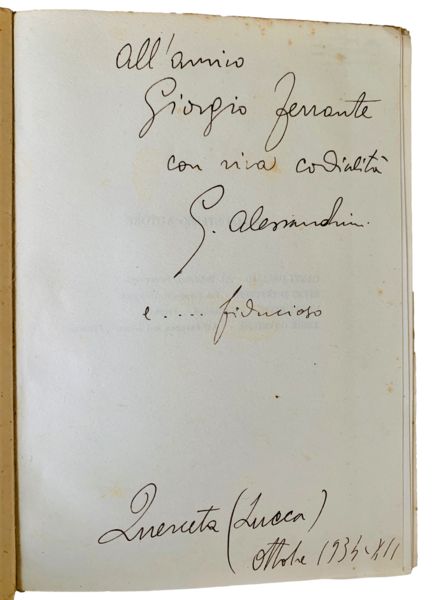 all'amico
Giorgio Ferrante
con viva codialità
G. Alessandrini
e .... fiducioso
Querceta (Lucca)
ottobre 1934-XII